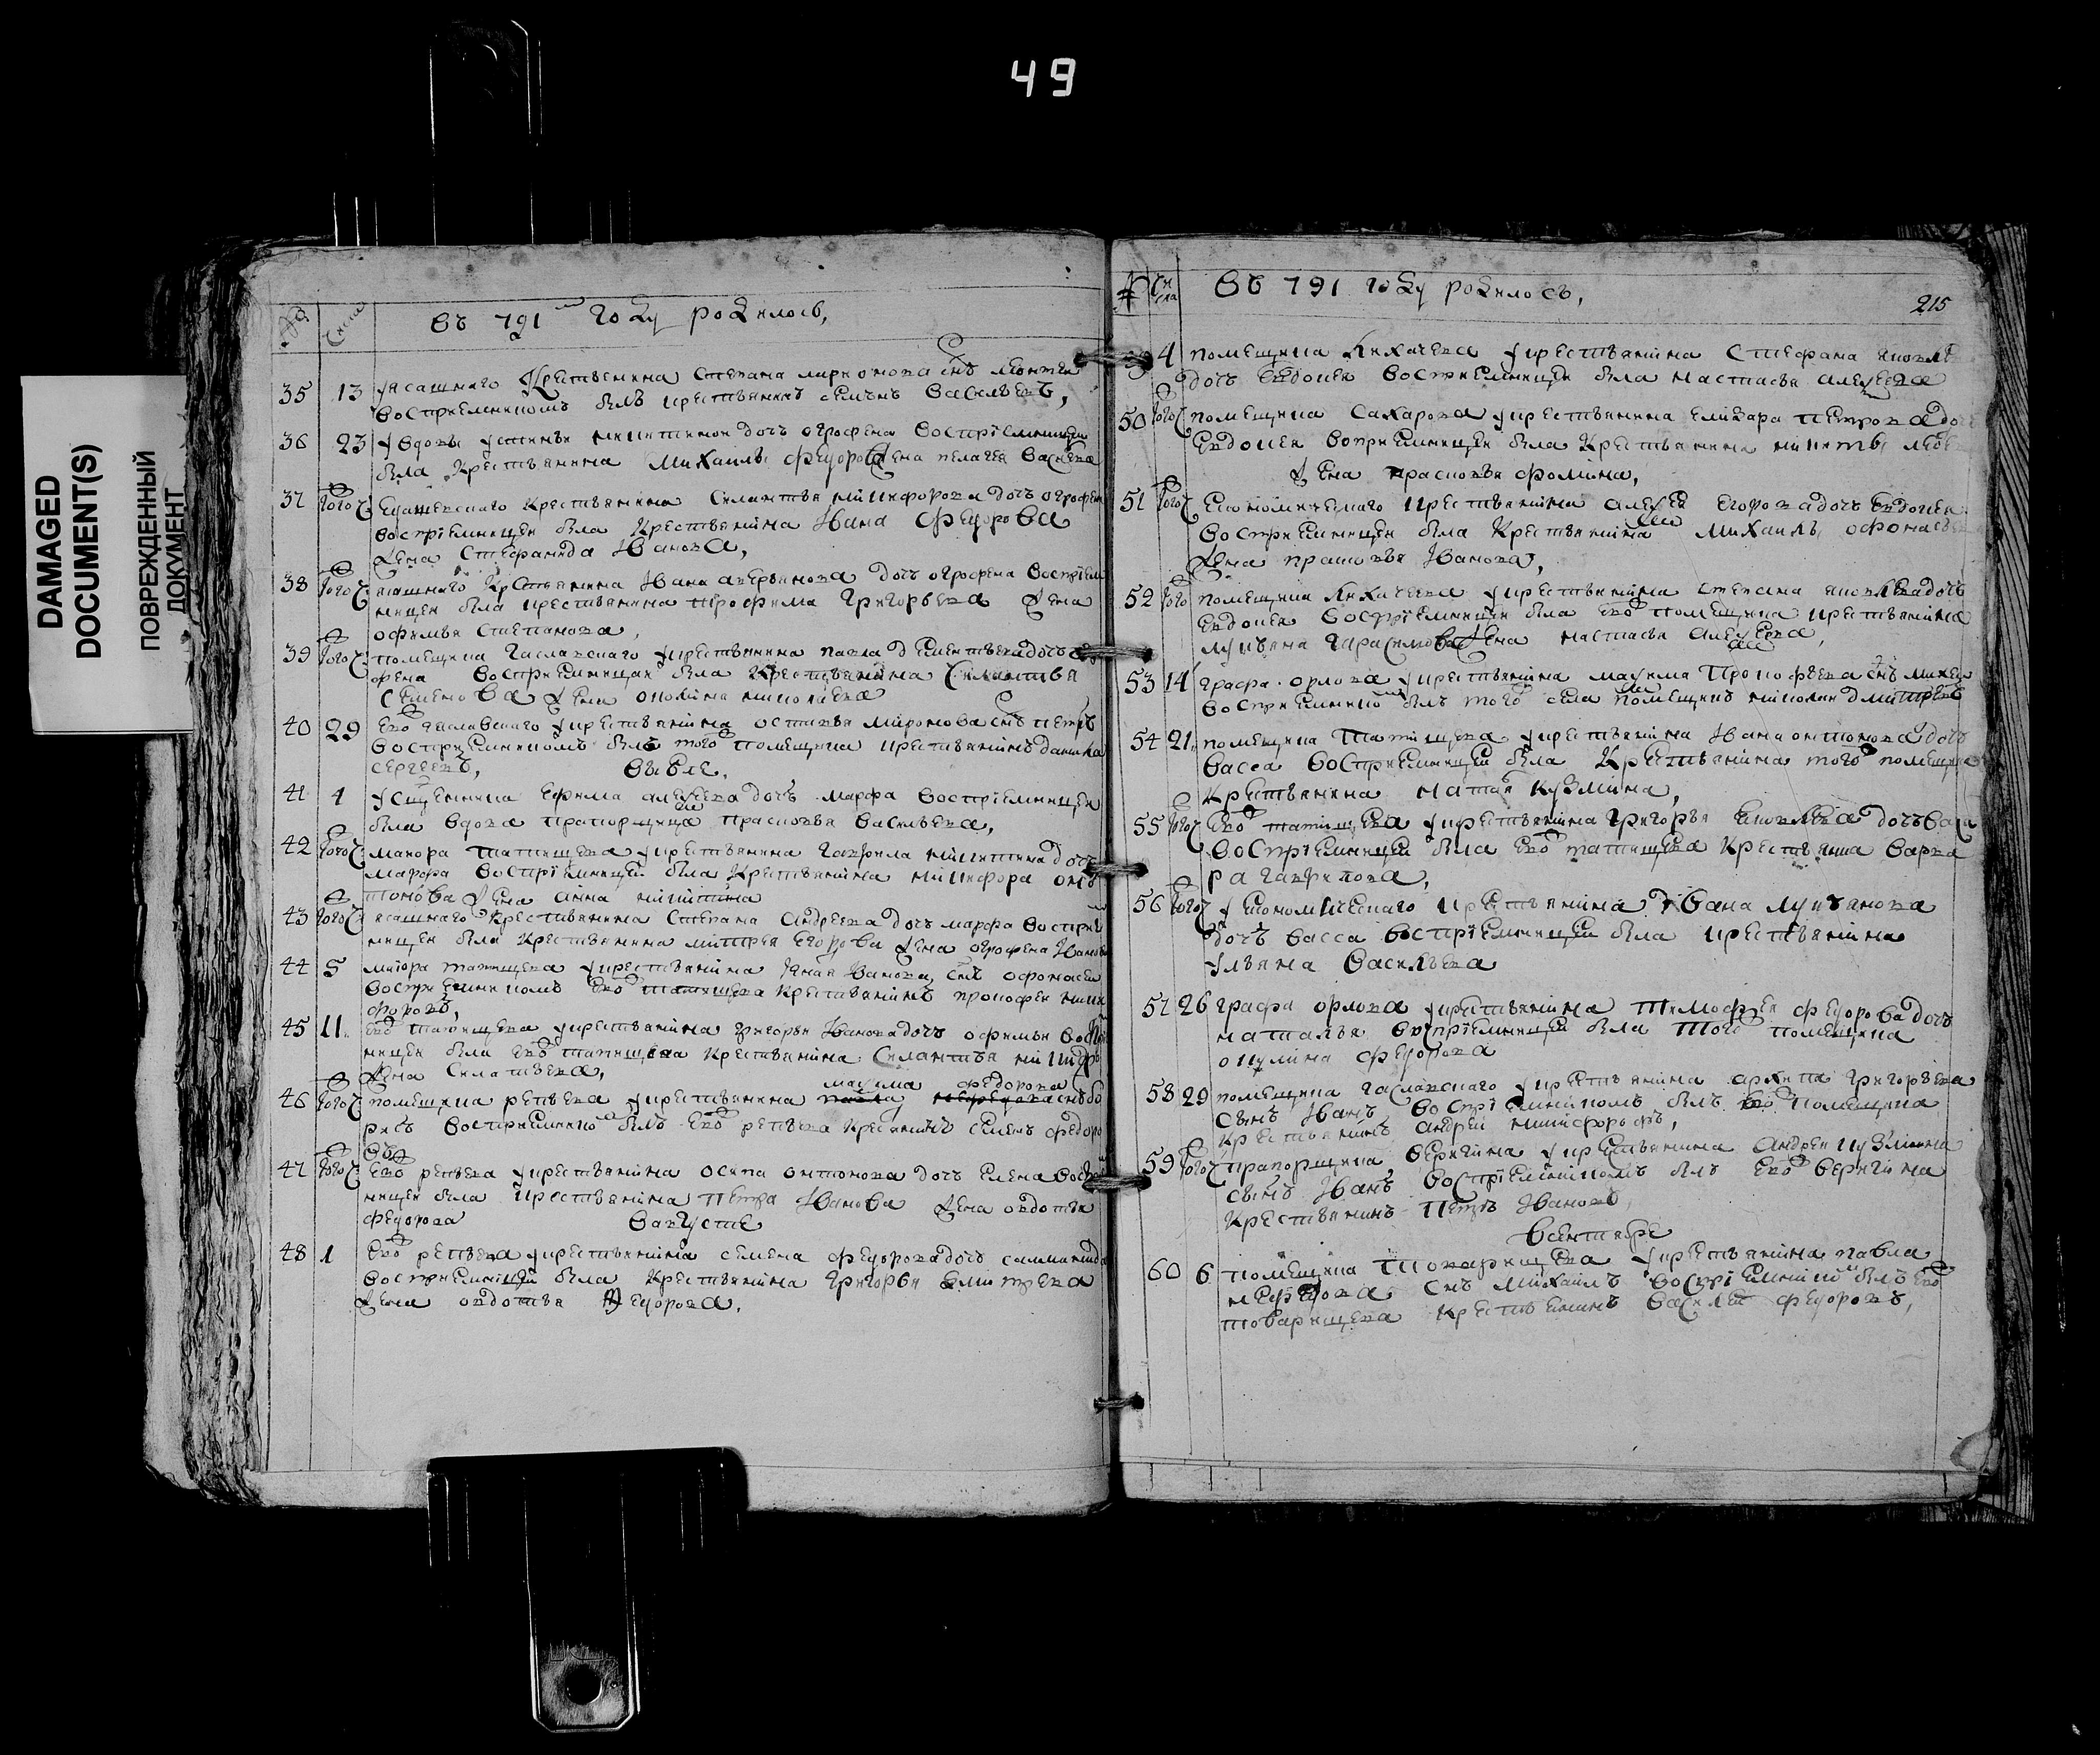 49
DAMAGED
DOCUMENT(S)
ПОВРЕЖДЕННЫЙ
ДОКУМЕНТ
Въ 791 году родилось,
35 13 ясашнаго Крестьянина Степана ларионова снъ
восприемникомъ былъ крестьянинъ семенъ Васильевъ,
36 23 у вдовы устиньи никитиной дочь огрофена восприемницей
была Крестьянина Михаилы федорова жена пелагея
37 того ж Крестьянина Силантья никифорова дочь огрофена
восприемницей была Крестьянина Ивана Федорова
жена Стефанида Иванова,
38 того ж ясашнаго Крестьянина Ивана аверьянова дочь огрофена восприем
ницей была крестьянина трофима Григорьева жена
офимья Степанова,
39 того ж помещика у крестьянина павла дементьева дочь
фена восприемницей была Крестьянина Силантья
Семенова жена николаева
40 29 ево у крестьянина остафья миронова снъ петръ
восприемникомъ былъ того помещика крестьянинъ данила
сергеевъ,
41 1 ефима алексеева дочь марфа восприемницей
была вдова прапорщица прасковья Васильева,
42 того ж маиора татищева у крестьянина гаврила никитина дочь
марфа восприемницей была Крестьянина никифора онъ
тонова жена анна никитина
43 того ж ясашнаго Крестьянина Степана Андреева дочь марфа восприем
ницей была Крестьянина митрея Егорова жена огрофена Иванова
44 5 маиора татищева у крестьянина Ивана Иванова снъ офонасей
восприемникомъ ево татищева крестьянинъ прокофей ники
форовъ,
45 11 ево татищева у крестьянина григорья Иванова дочь офимья восприем
ницей была ево татищева Крестьянина Силантья
жена Силатьева,
максима федорова
46 того ж помещика репьева у крестьянина снъ бо
рисъ восприемникомъ былъ ево репьева крестьянинъ семенъ федоро
въ
47 того ж ево репьева у крестьянина осипа онтонова дочь елена восприем
ницей была крестьянина петра Иванова жена овдотья
федорова
в августе
48 1 ево репьева у крестьянина семена федорова дочь
восприемницей была Крестьянина григорья дмитрева
жена овдотья Федорова.
№ Чи
сла Въ 791 году родилось,
215
4 помещика Лихачева у крестьянина Стефана яковле
дочь Евдокея восприемницей была настасья алексеева
50 того ж помещика Сахарова у крестьянина елизара петрова дочь
Евдокея воприемницей была Крестьянина никиты
жена прасковья фомина,
51 того ж экономическаго крестьянина алексея егорова дочь Евдокея
восприемницей была Крестьянина Михаилы офонасье
жена прасковья Иванова,
52 того помещика Лихачева у крестьянина степана яковлева дочь
Евдокея восприемницей была ево помещика крестьянина
лукьяна герасимова жена настасья алексеева,
53 14 графа орлова у крестьянина максима прокофьева снъ
восприемникомъ былъ того села помещикъ николай дмитревъ
54 21 помещика татищева у крестьянина Ивана онтонова дочь
васса восприемницей была Крестьянина того помещика
Крестьянина Кузмина,
55 того ж ево татищева у крестьянина григорья яковлева дочь васа
восприемницей была ево татищева Крестьянина варва
ра гаврилова,
56 того ж у экономическаго крестьянина Ивана лукьянова
дочь васса восприемницей была крестьянина
ульяна васильева
57 26 графа орлова у крестьянина тимофея федорова дочь
наталья восприемницей была того помещика
окулина федорова
58 29 помещика у крестьянина архипа григорьева
сынъ Иванъ восприемникомъ былъ ево помещика
Крестьянинъ андрей никифоровъ,
59 того ж прапорщика веригина у крестьянина андрея кузмина
сынъ Иванъ восприемникомъ былъ ево веригина
Крестьянинъ Петръ Ивановъ,
в сентябре
60 6 помещика товарищева у крестьянина павла
нефедова снъ михаилъ восприемникомъ былъ ево
товарищева Крестьянинъ василей федоровъ,